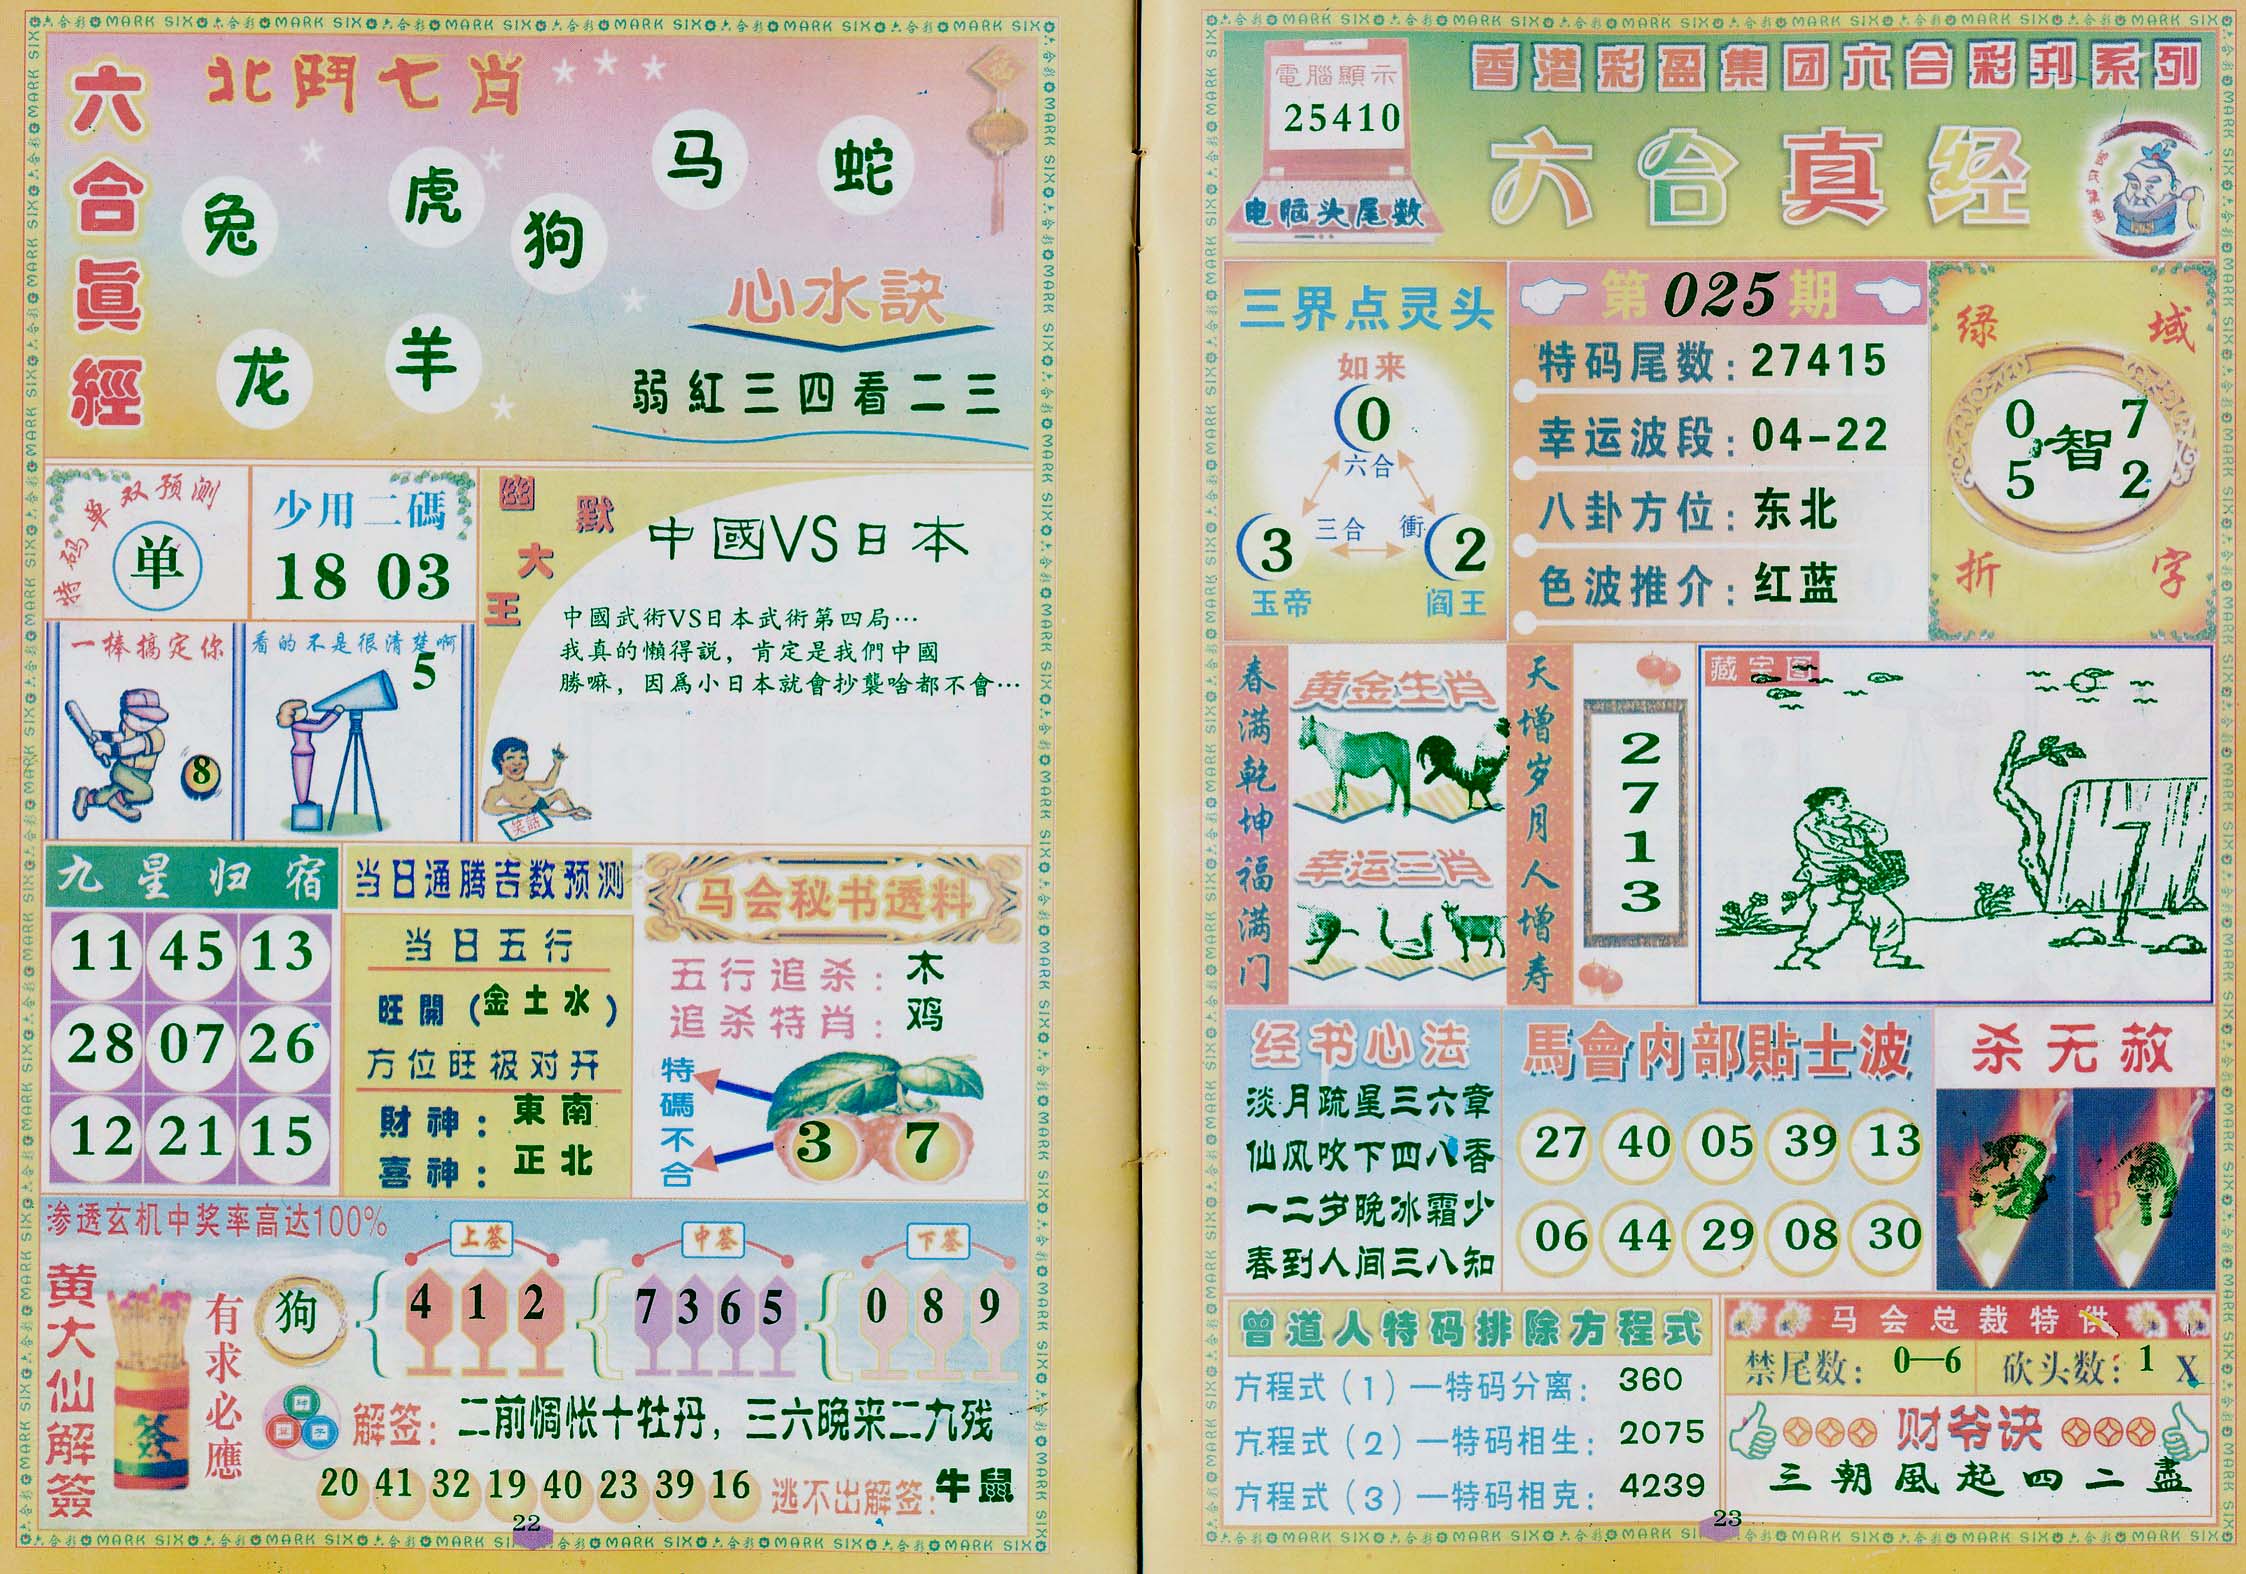 六合眞經
北鬥七肖
兔 虎 狗 马 蛇
龙 羊
心水訣
弱紅三四看二三
特码单双预测
单
少用二碼
18 03
幽默大王
中國VS日本
中國武術VS日本武術第四局…
我真的懶得説，肯定是我們中國
勝嘛，因爲小日本就會抄襲啥都不會…
笑話
一棒搞定你
8
看的不是很清楚啊
5
九星归宿
11 45 13
28 07 26
12 21 15
当日通腾吉数预测
当日五行
旺開（金土水）
方位旺极对开
財神：東南
喜神：正北
马会秘书透料
五行追杀：木
追杀特肖：鸡
特碼不合
3 7
渗透玄机中奖率高达100%
黄大仙解簽
有求必應
狗
上签
4 1 2
中签
7 3 6 5
下签
0 8 9
解签：二前惆怅十牡丹，三六晚来二九残
20 41 32 19 40 23 39 16
逃不出解签：牛鼠
22
電腦顯示
25410
电脑头尾数
香港彩盈集团六合彩刊系列
六合真经
三界点灵头
如来
0
六合
三合 衝
3 2
玉帝 阎王
第025期
特码尾数：27415
幸运波段：04-22
八卦方位：东北
色波推介：红蓝
绿域折字
0 7
智
5 2
春满乾坤福满门
黄金生肖
幸运三肖
天增岁月人增寿
2713
藏宝图
经书心法
淡月疏星三六章
仙风吹下四八香
一二岁晚冰霜少
春到人间三八知
馬會内部貼士波
27 40 05 39 13
06 44 29 08 30
杀无赦
曾道人特码排除方程式
方程式（1）—特码分离：360
方程式（2）—特码相生：2075
方程式（3）—特码相克：4239
马会总裁特供
禁尾数：0—6 砍头数：1 X
财爷诀
三朝風起四二盡
23